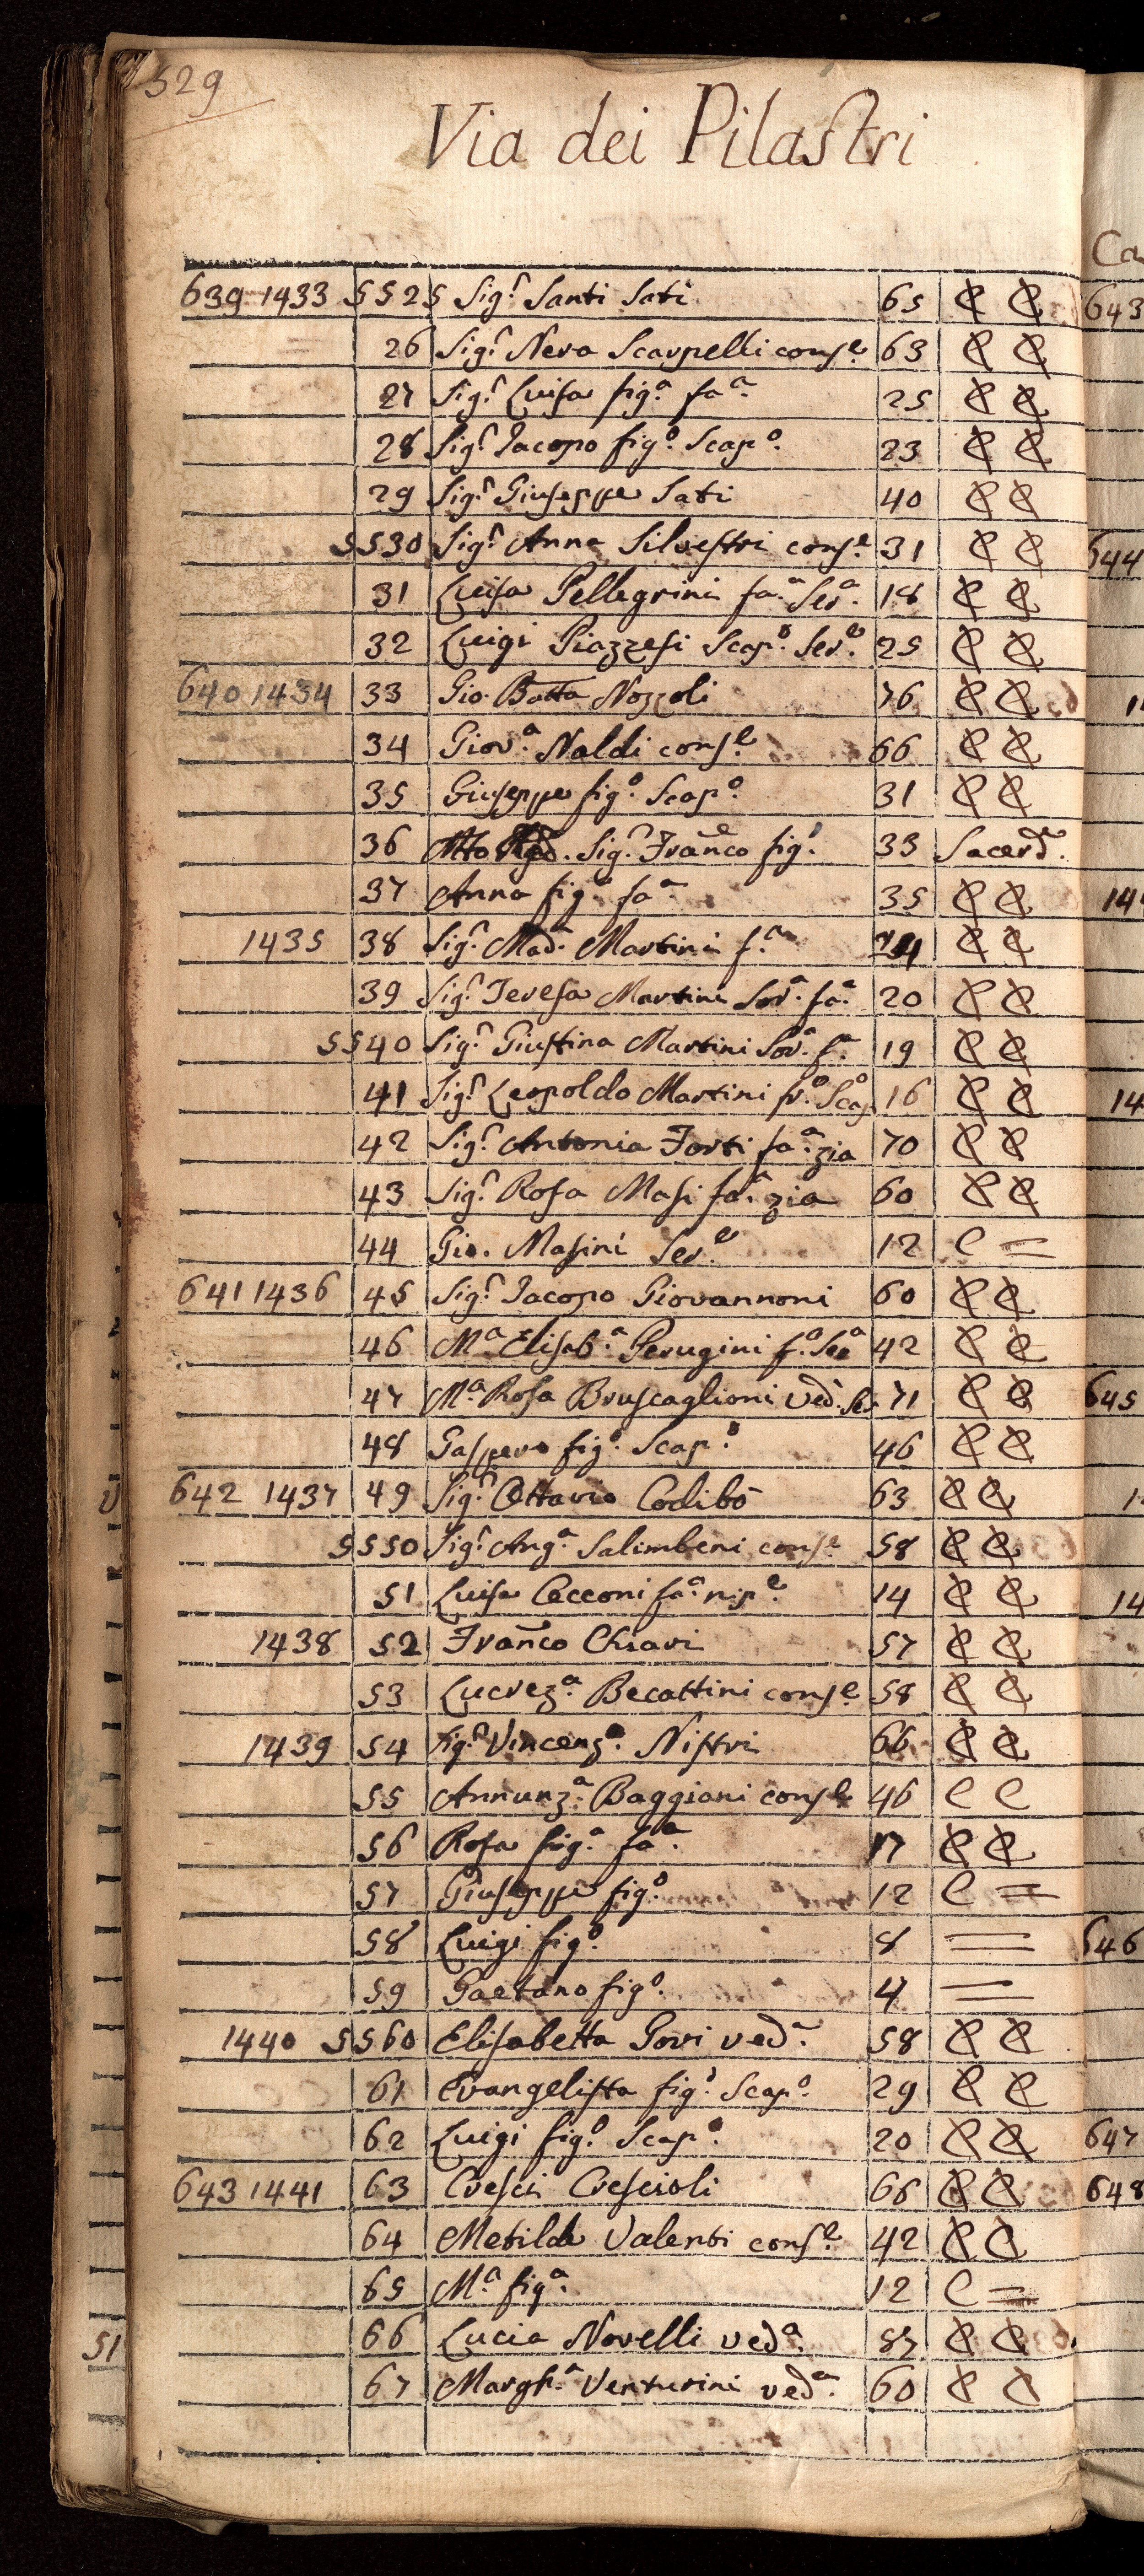 529
Via dei Pilastri
639 1433 5525 Sig.r Santi Sati 65 C C
26 Sig.r Nera Scarpelli cons.e 63 C C
27 Sig.r Luisa fig.a fa.a 25 C C
28 Sig.r Iacopo fig.o Scap.o 23 C C
29 Sig.r Giuseppe Sati 40 C C
5530 Sig.r Anna Silvestri cons.e 31 C C
31 Luisa Pellegrini fa.a Ser.a 18 C C
32 Luigi Piazzesi Scap.o Ser.e 25 C C
640 1434 33 Gio. Batta Nozzoli 76 C C
34 Giov.a Naldi cons.e 66 C C
35 Giuseppe fig.o Scap.o 31 C C
36 Sig.r Franco fig.o 33 Sacerd.e
37 Anna fig.a fa.a 35 C C
1435 38 Sig.r Mad.a Martini f.a C C
39 Sig.r Teresa Martini Sor.a fa.a 20 C C
5540 Sig.r Giustina Martini Sor.a f.a 19 C C
41 Sig.r Leopoldo Martini fr.o Scap.o 16 C C
42 Sig.r Antonia Forti fa.a zia 70 C C
43 Sig.r Rosa Masi fa.a zia 60 C C
44 Gio. Masini Ser.e 12 C =
641 1436 45 Sig.r Iacopo Giovannoni 60 C C
46 M.a Elisab.a Perugini f.a Ser.a 42 C C
47 M.a Rosa Bruscaglioni Ved. Ser. 71 C C
48 Gaspero fig.o Scap.o 46 C C
642 1437 49 Sig.r Ottavio Codibò 63 C C
5550 Sig.r Ang.a Salimbeni cons.e 58 C C
51 Luisa Cecconi fa.a nip.e 14 C C
1438 52 Franco Chiari 57 C C
53 Lucrez.a Becattini cons.e 58 C C
1439 54 Sig.r Vincenz.o Nistri 66 C C
55 Annunz.a Baggiani cons.e 46 C C
56 Rosa fig.a fa.a 17 C C
57 Giuseppe fig.o 12 C =
58 Luigi fig.o 8 =
59 Gaetano fig.o 4 =
1440 5560 Elisabetta Gori ved.a 58 C C
61 Evangelista fig.o Scap.o 29 C C
62 Luigi fig.o Scap.o 20 C C
643 1441 63 Cresci Crescioli 66 C C
64 Metilde Valenti cons.e 42 C C
65 M.a fig.a 12 C =
66 Lucia Novelli ved.a C C
67 Margh.a Venturini ved.a 60 C C
51
Ca
643
644
14
14
645
14
646
647
648